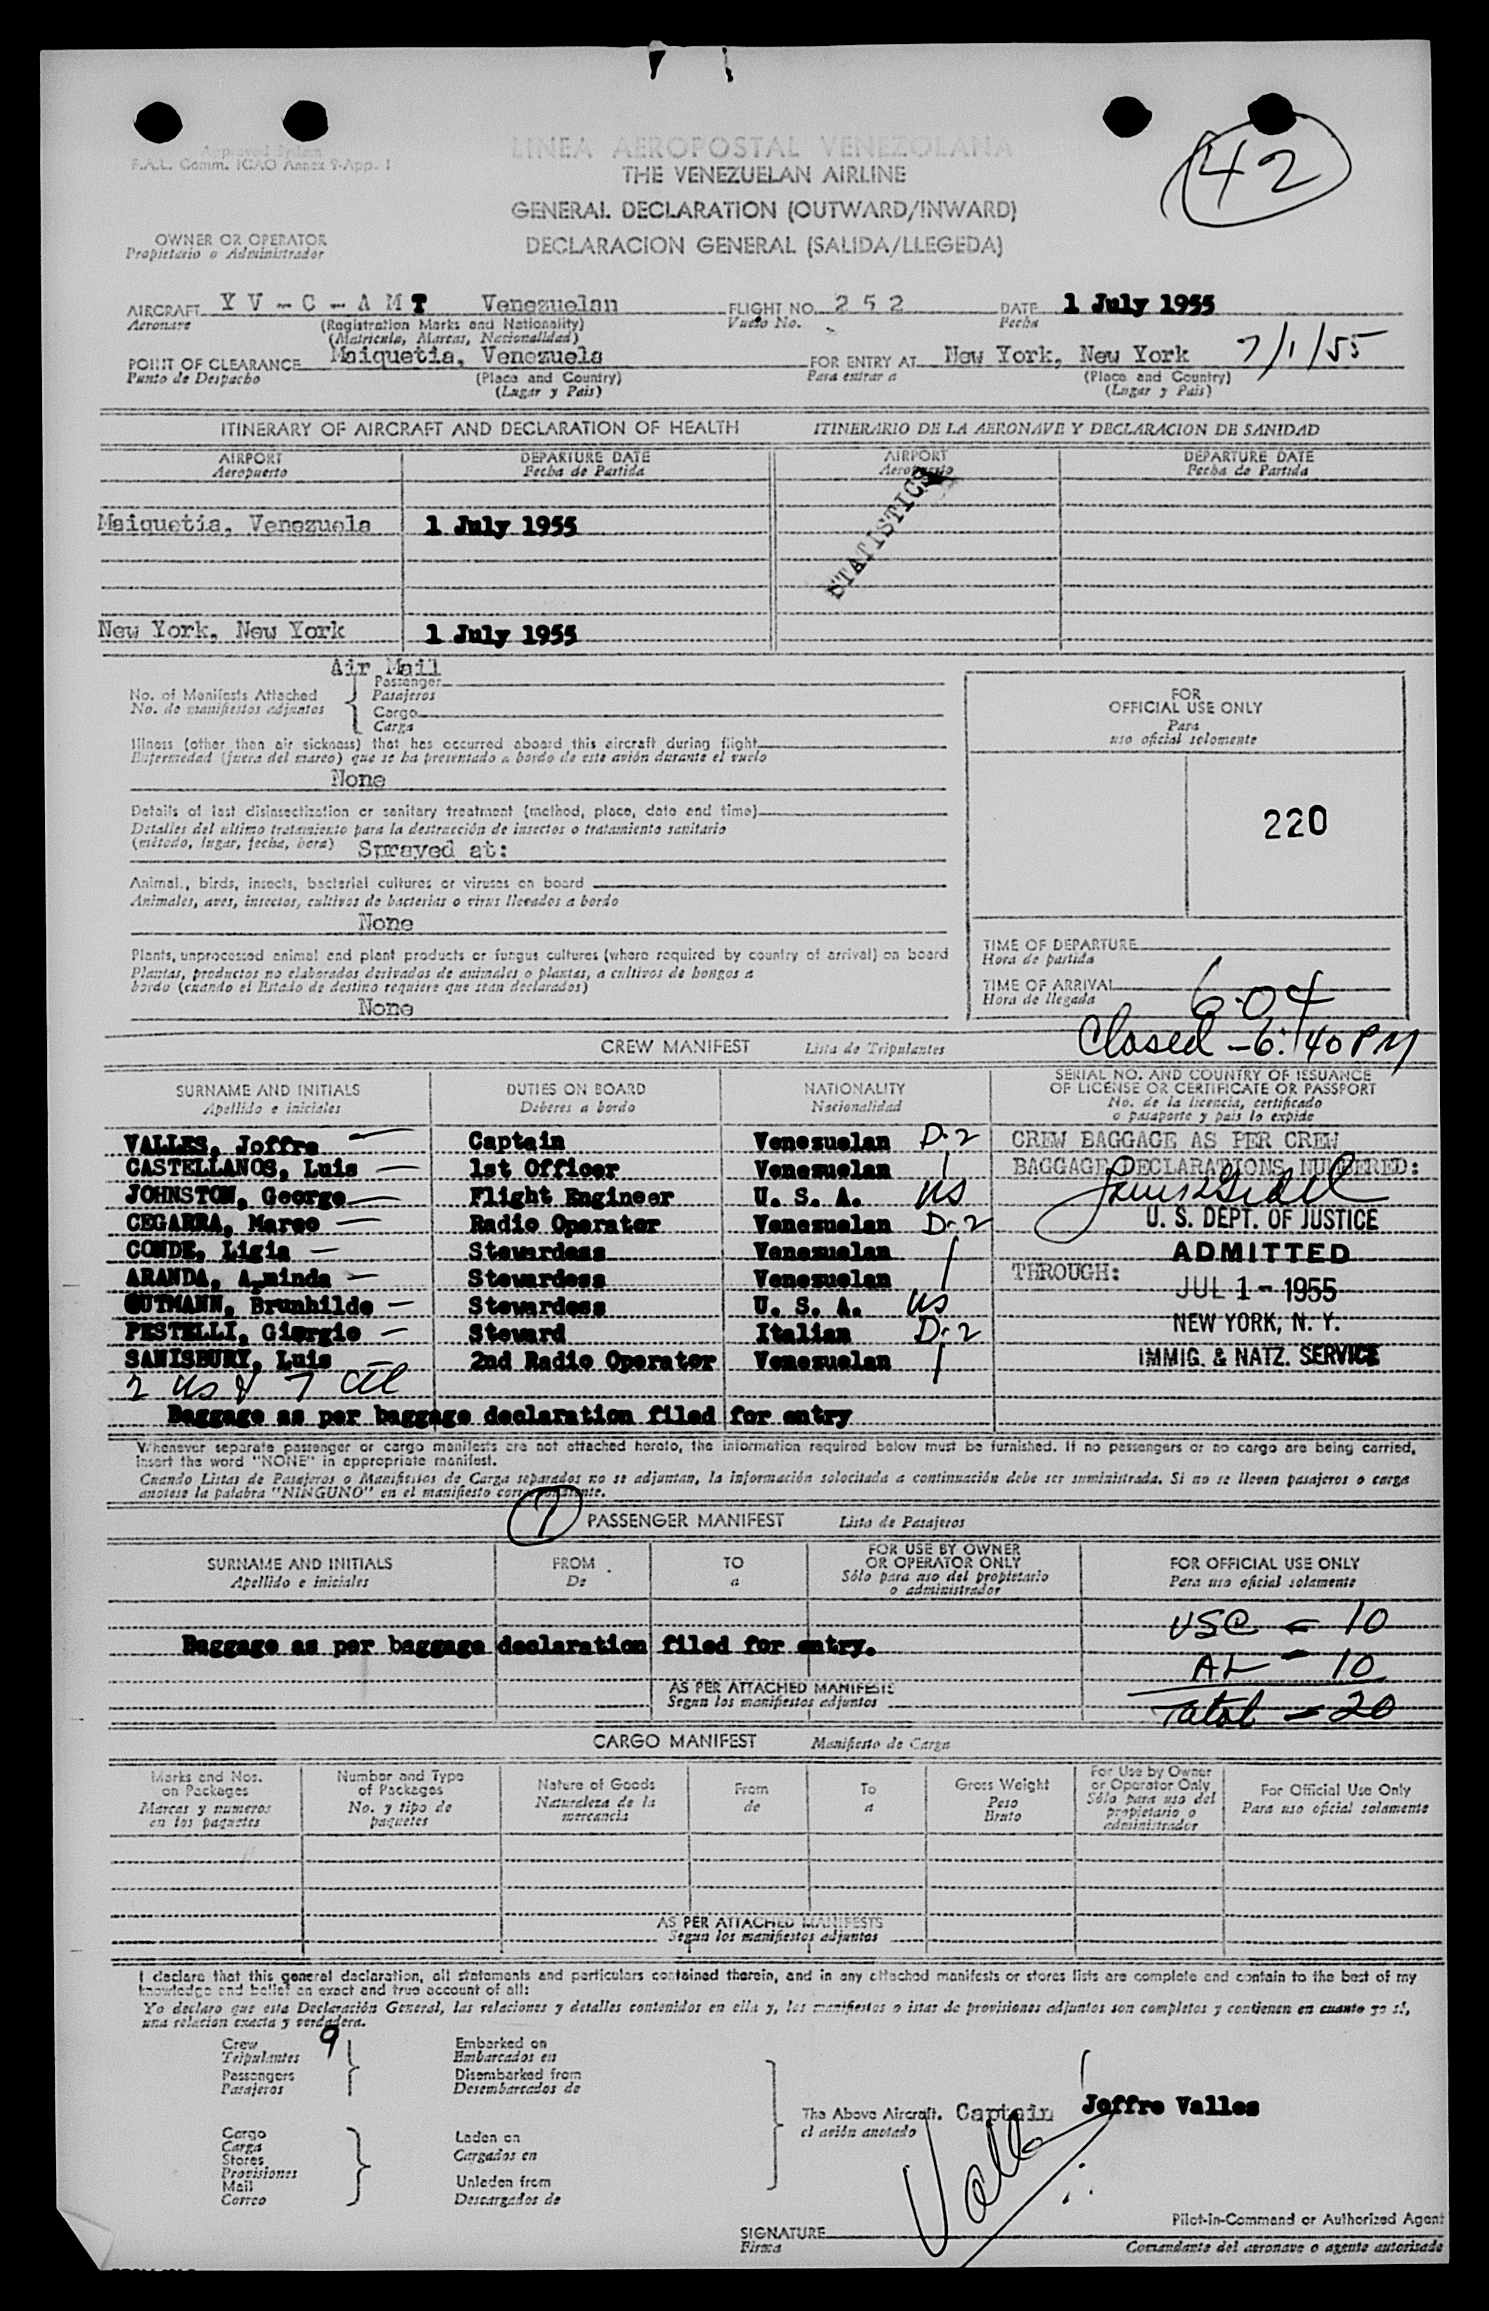 42
Approved Under
F.A.L. Comm. ICAO Annex 9-App. 1
LINEA AEROPOSTAL VENEZOLANA
THE VENEZUELAN AIRLINE
GENERAL DECLARATION (OUTWARD/INWARD)
DECLARACION GENERAL (SALIDA/LLEGEDA)
OWNER OR OPERATOR
Propietario o Administrador
AIRCRAFT Y V - C - A M T Venezuelan FLIGHT NO. 2 5 2 DATE 1 July 1955
Aeronave (Registration Marks and Nationality) Vuelo No. Fecha
(Matricula, Marcas, Nacionalidad)
POINT OF CLEARANCE Maiquetia, Venezuela FOR ENTRY AT New York, New York 7/1/55
Punto de Despacho (Place and Country) Para entrar a (Place and Country)
(Lugar y Pais) (Lugar y Pais)
ITINERARY OF AIRCRAFT AND DECLARATION OF HEALTH ITINERARIO DE LA AERONAVE Y DECLARACION DE SANIDAD
AIRPORT DEPARTURE DATE AIRPORT DEPARTURE DATE
Aeropuerto Fecha de Partida Aeropuerto Fecha de Partida
STATISTICS
Maiquetia, Venezuela 1 July 1955
New York, New York 1 July 1955
Air Mail
Passenger
No. of Manifests Attached Pasajeros
No. de manifiestos adjuntos Cargo
Carga
FOR
OFFICIAL USE ONLY
Para
uso oficial solomente
Illness (other than air sickness) that has occurred aboard this aircraft during flight
Enfermedad (fuera del mareo) que se ha presentado a bordo de este avión durante el vuelo
None
Details of last disinsectization or sanitary treatment (method, place, date and time)
Detalles del ultimo tratamiento para la destrucción de insectos o tratamiento sanitario
(método, lugar, fecha, hora) Sprayed at:
220
Animal., birds, insects, bacterial cultures or viruses on board
Animales, aves, insectos, cultivos de bacterias o virus llevados a bordo
None
Plants, unprocessed animal and plant products or fungus cultures (where required by country of arrival) on board
Plantas, productos no elaborados derivados de animales o plantas, a cultivos de hongos a
bordo (cuando el Estado de destino requiere que sean declarados)
None
TIME OF DEPARTURE
Hora de partida
TIME OF ARRIVAL 6:04
Hora de llegada
Closed - 6:40 PM
CREW MANIFEST Lista de Tripulantes
SURNAME AND INITIALS DUTIES ON BOARD NATIONALITY SERIAL NO. AND COUNTRY OF ISSUANCE
OF LICENSE OR CERTIFICATE OR PASSPORT
Apellido e iniciales Deberes a bordo Nacionalidad No. de la licencia, certificado
o pasaporte y pais lo expide
VALLES, Joffre Captain Venezuelan D-2 CREW BAGGAGE AS PER CREW
CASTELLANOS, Luis 1st Officer Venezuelan BAGGAGE DECLARATIONS NUMBERED:
JOHNSTON, George Flight Engineer U. S. A. US
CEGARRA, Marco Radio Operator Venezuelan D-2 U. S. DEPT. OF JUSTICE
CONDE, Ligia Stewardess Venezuelan ADMITTED
ARANDA, Aminda Stewardess Venezuelan THROUGH: JUL 1 - 1955
GUTMANN, Brunhilde Stewardess U. S. A. US NEW YORK, N. Y.
PESTELLI, Giorgio Steward Italian D-2 IMMIG. & NATZ. SERVICE
SANISBURY, Luis 2nd Radio Operator Venezuelan
2 US & 7
Baggage as per baggage declaration filed for entry
Whenever separate passenger or cargo manifests are not attached hereto, the information required below must be furnished. If no passengers or no cargo are being carried,
insert the word "NONE" in appropriate manifest.
Cuando Listas de Pasajeros o Manifiestos de Carga separados no se adjuntan, la información solocitada a continuación debe ser suministrada. Si no se lleven pasajeros o carga
anotese la palabra "NINGUNO" en el manifiesto correspondiente.
PASSENGER MANIFEST Lista de Pasajeros
SURNAME AND INITIALS FROM TO FOR USE BY OWNER
OR OPERATOR ONLY FOR OFFICIAL USE ONLY
Apellido e iniciales De a Sólo para uso del propietario
o administrador Para uso oficial solamente
USC = 10
Baggage as per baggage declaration filed for entry.
AL - 10
AS PER ATTACHED MANIFESTS
Segun los manifiestos adjuntos
Total = 20
CARGO MANIFEST Manifiesto de Carga
Marks and Nos.
on Packages
Marcas y numeros
en los paquetes
Number and Type
of Packages
No. y tipo de
paquetes
Nature of Goods
Naturaleza de la
mercancia
From
de
To
a
Gross Weight
Peso
Bruto
For Use by Owner
or Operator Only
Sólo para uso del
propietario o
administrador
For Official Use Only
Para uso oficial solamente
AS PER ATTACHED MANIFESTS
Segun los manifiestos adjuntos
I declare that this general declaration, all statements and particulars contained therein, and in any attached manifests or stores lists are complete and contain to the best of my
knowledge and belief an exact and true account of all:
Yo declaro que esta Declaración General, las relaciones y detalles contenidos en ella y, los manifiestos o istas de provisiones adjuntos son completos y contienen en cuanto yo sí,
una relacion exacta y verdadera.
Crew 9 Embarked on
Tripulantes Embarcados en
Passengers Disembarked from
Pasajeros Desembarcados de
The Above Aircraft. Captain Joffre Valles
el avión anotado
Cargo Laden on
Carga Cargados en
Stores
Provisiones Unladen from
Mail Descargados de
Correo
Valles
Pilot-in-Command or Authorized Agent
SIGNATURE
Firma Comandante del aeronave o agente autorizado